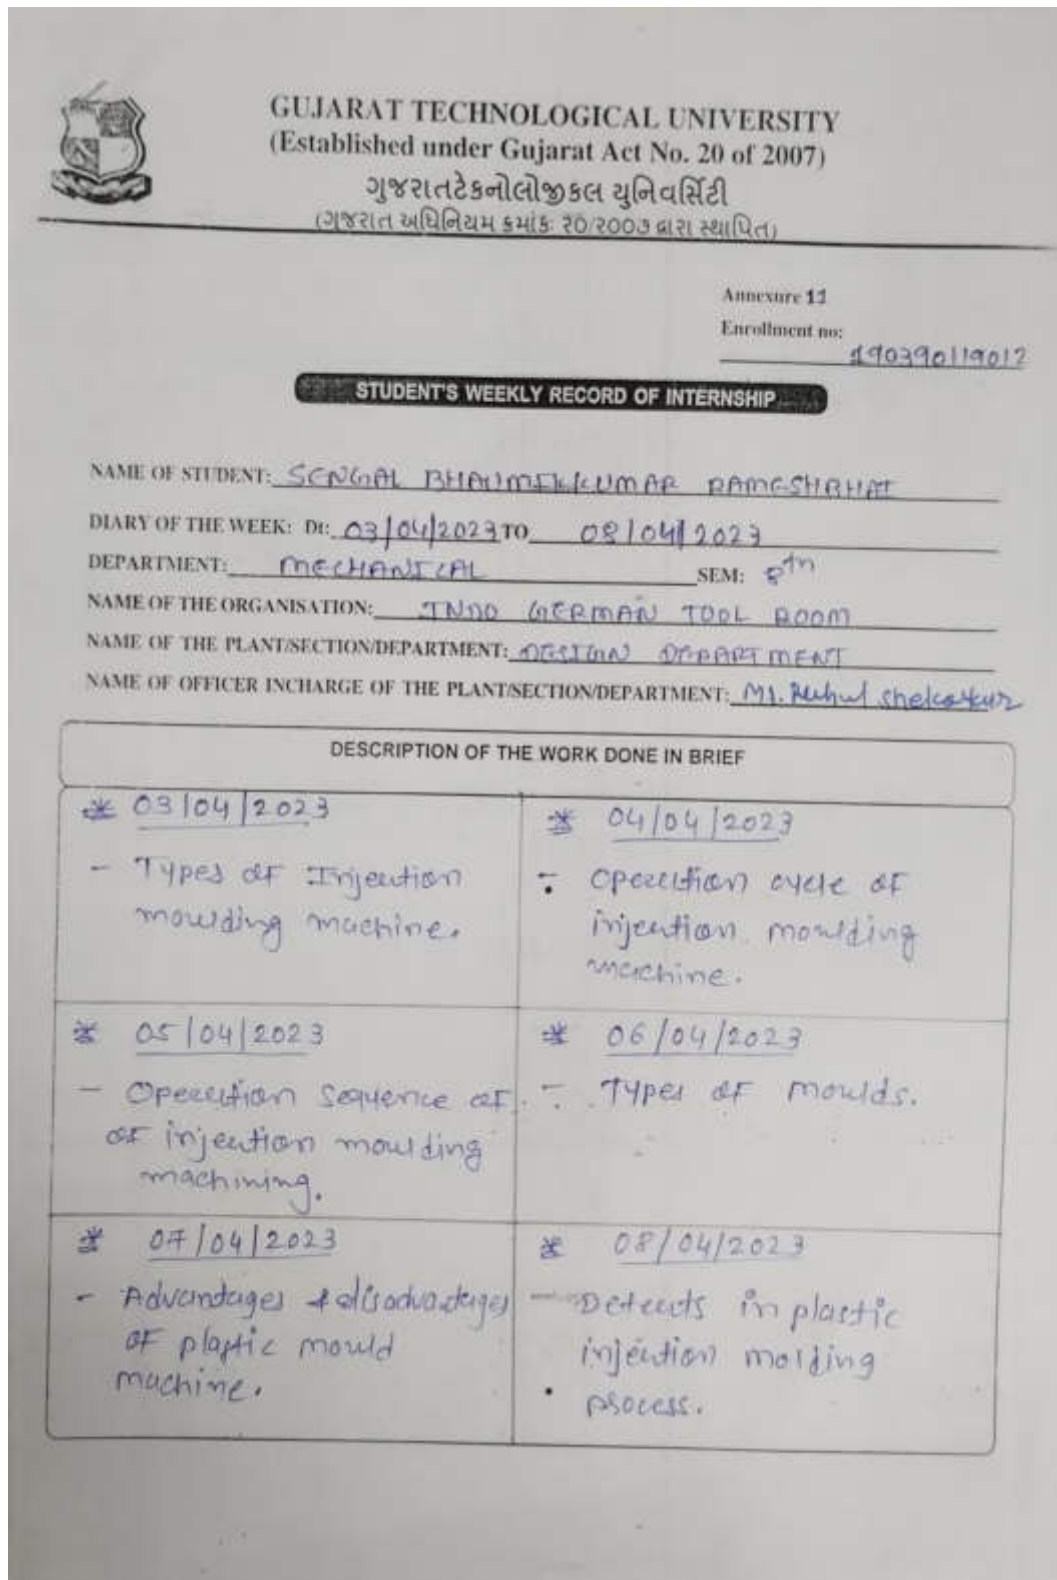 GUJARAT TECHNOLOGICAL UNIVERSITY
(Established under Gujarat Act No. 20 of 2007)
ગુજરાતટેકનોલોજીકલ યુનિવર્સિટી
(ગુજરાત અધિનિયમ ક્રમાંક: ૨૦/૨૦૦૭ દ્વારા સ્થાપિત)
Annexure 11
Enrollment no:
190390119012
STUDENT'S WEEKLY RECORD OF INTERNSHIP
NAME OF STUDENT: SENGAL BHAUMIKKUMAR RAMESHBHAI
DIARY OF THE WEEK: Dt: 03/04/2023 TO 08/04/2023
DEPARTMENT: MECHANICAL SEM: 8th
NAME OF THE ORGANISATION: INDO GERMAN TOOL ROOM
NAME OF THE PLANT/SECTION/DEPARTMENT: DESIGN DEPARTMENT
NAME OF OFFICER INCHARGE OF THE PLANT/SECTION/DEPARTMENT: Mr.
DESCRIPTION OF THE WORK DONE IN BRIEF
* 03/04/2023
- Types of Injection
moulding machine.
* 04/04/2023
- Operation cycle of
injection moulding
machine.
* 05/04/2023
- Operation Sequence of
of injection moulding
machining.
* 06/04/2023
- Types of moulds.
* 07/04/2023
- Advantages & disadvantages
of plastic mould
machine.
* 08/04/2023
- Defects in plastic
injection molding
process.